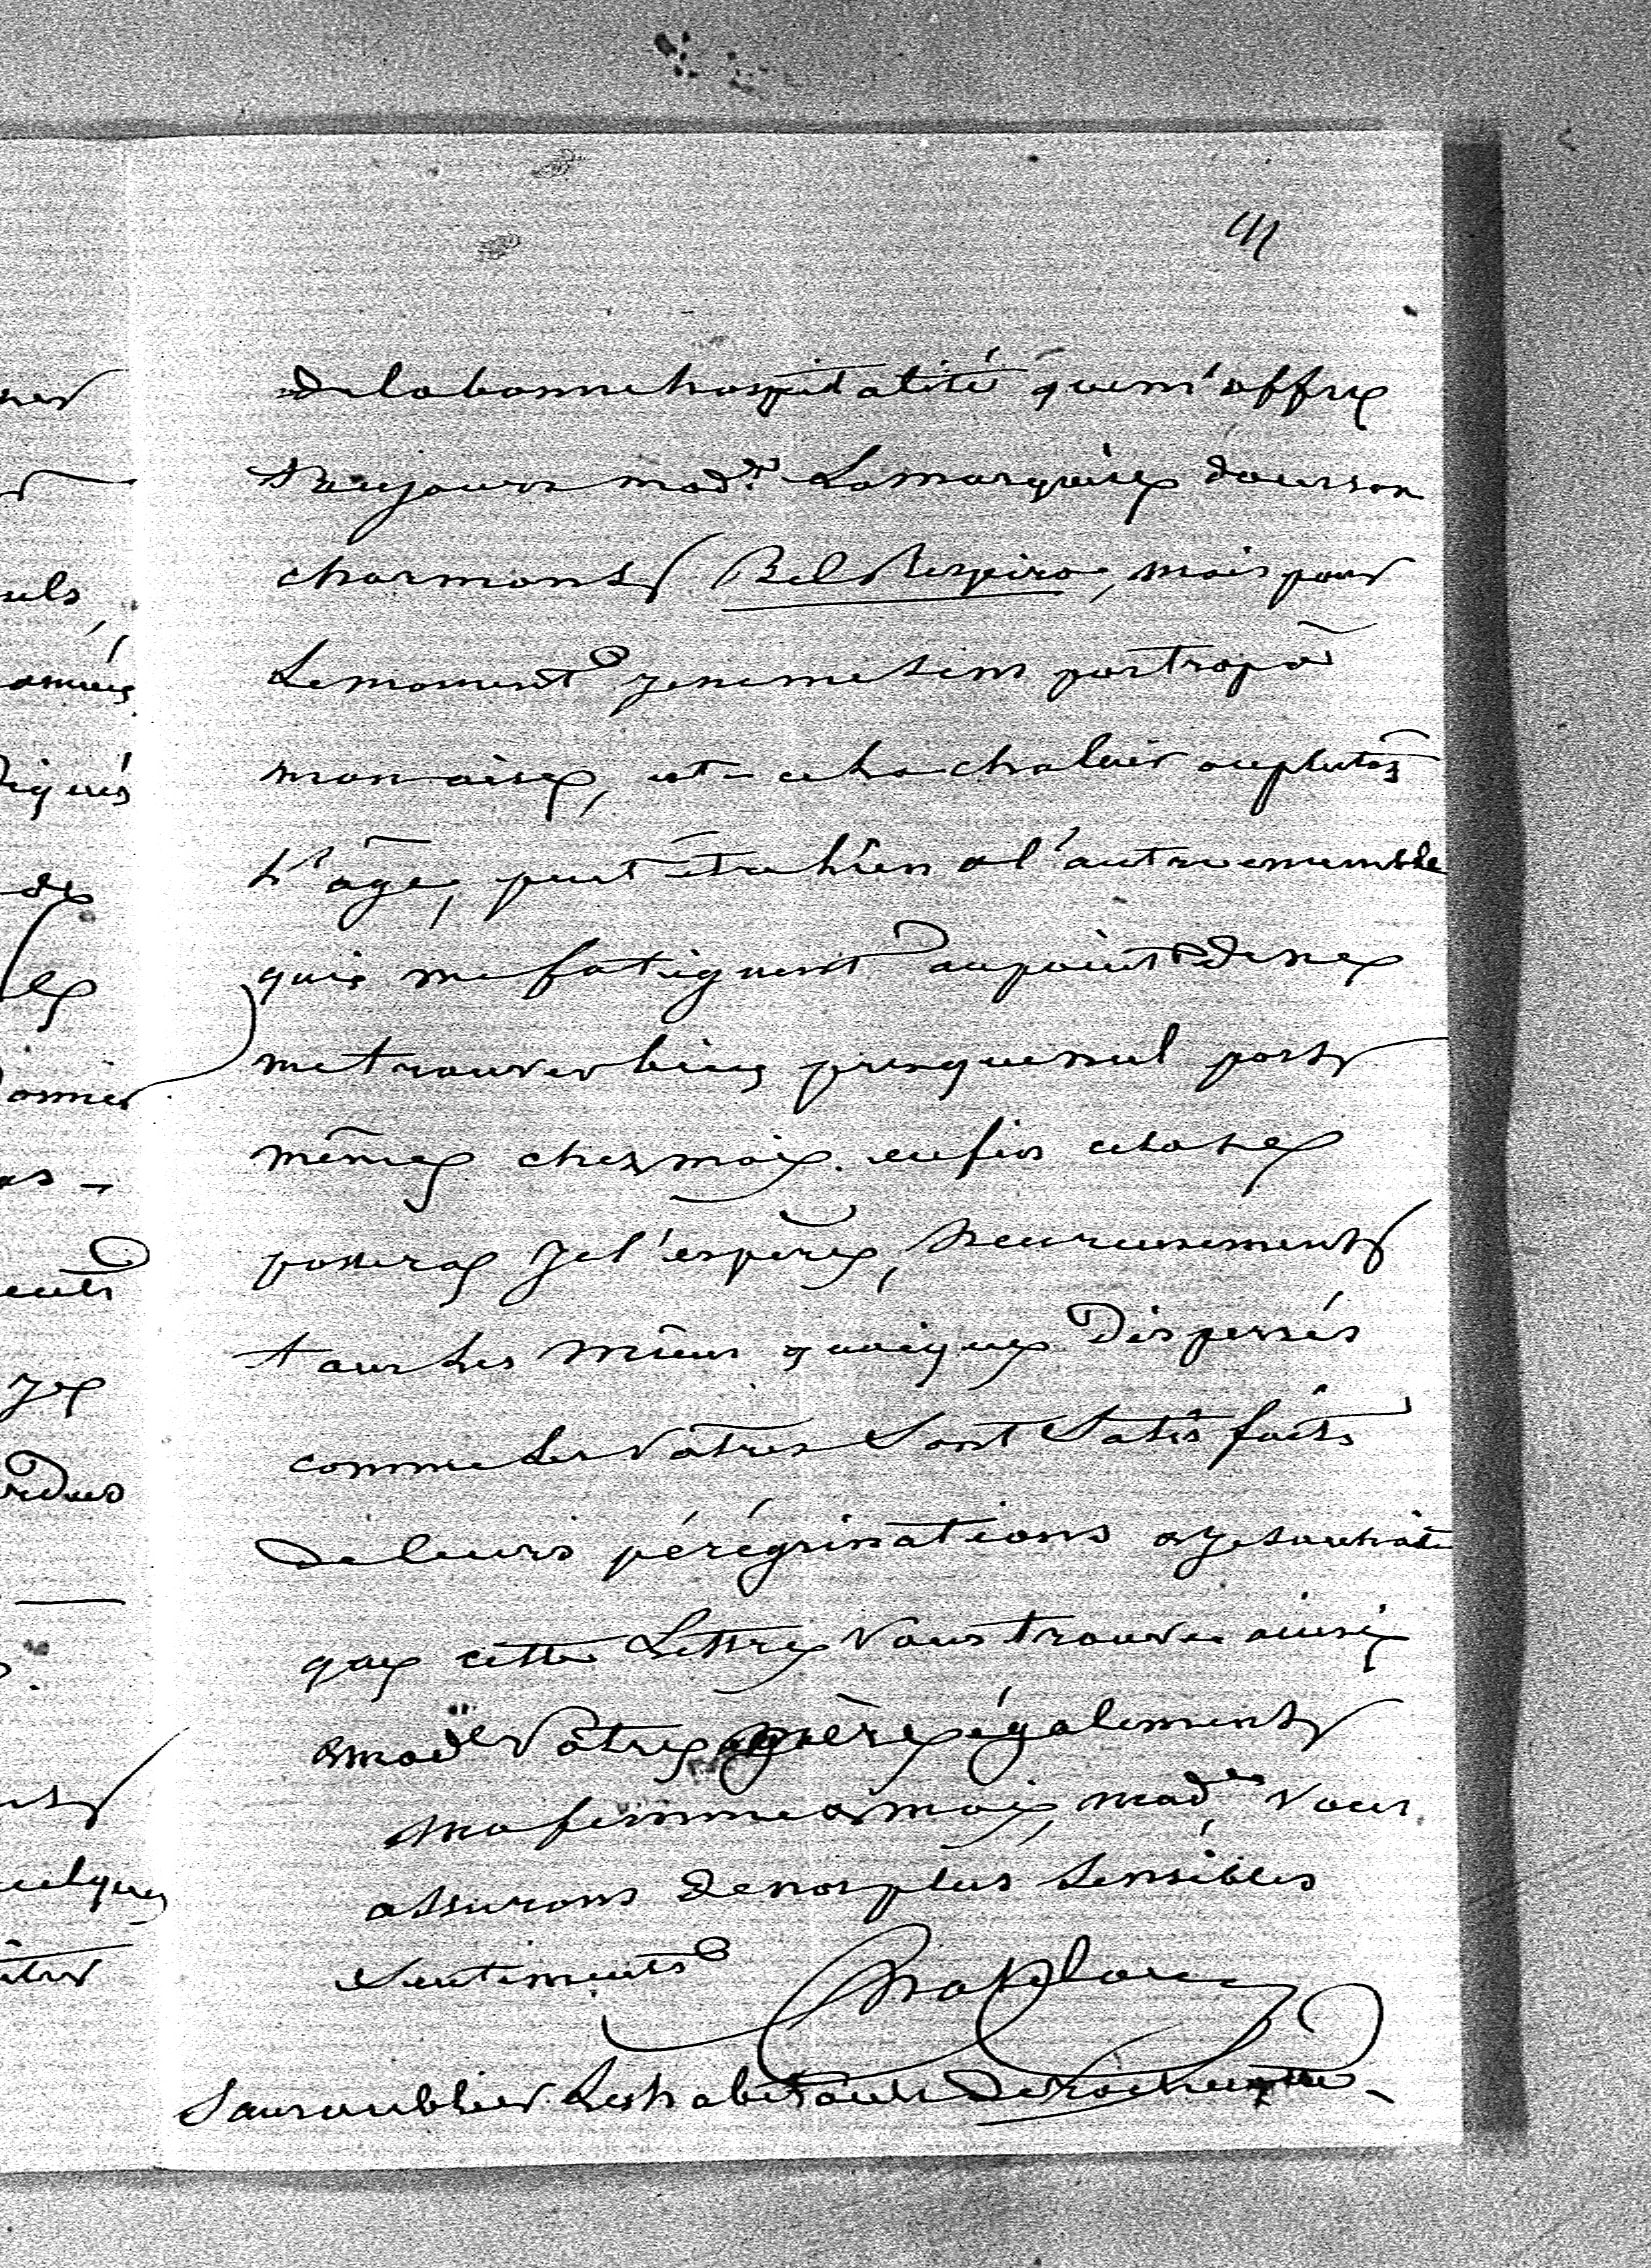 de la bonne hospitalité que m'offre
toujours mad.e La marquise dans son
charmant Bel Respiro, mais pour
Le moment je ne me sens pas trop à
mon aise, est-ce la chaleur ou plutôt
L'âge, peut être bien & l'autre ensemble
qui me fatiguent au point de ne
me trouver bien presque nul part
même chez moi. enfin cela se
passera je l'espère, heureusement
tous Les miens quoique Dispersés
comme Les Vôtres Sont Satisfaits
de leurs pérégrinations & je souhaite
que cette Lettre Vous trouve ainsi
& mad.e Vôtre mère également
ma femme & moi, mad.es Vous
assurons de nos plus Sensibles
Sentiments
Sans oublier Les habitants de